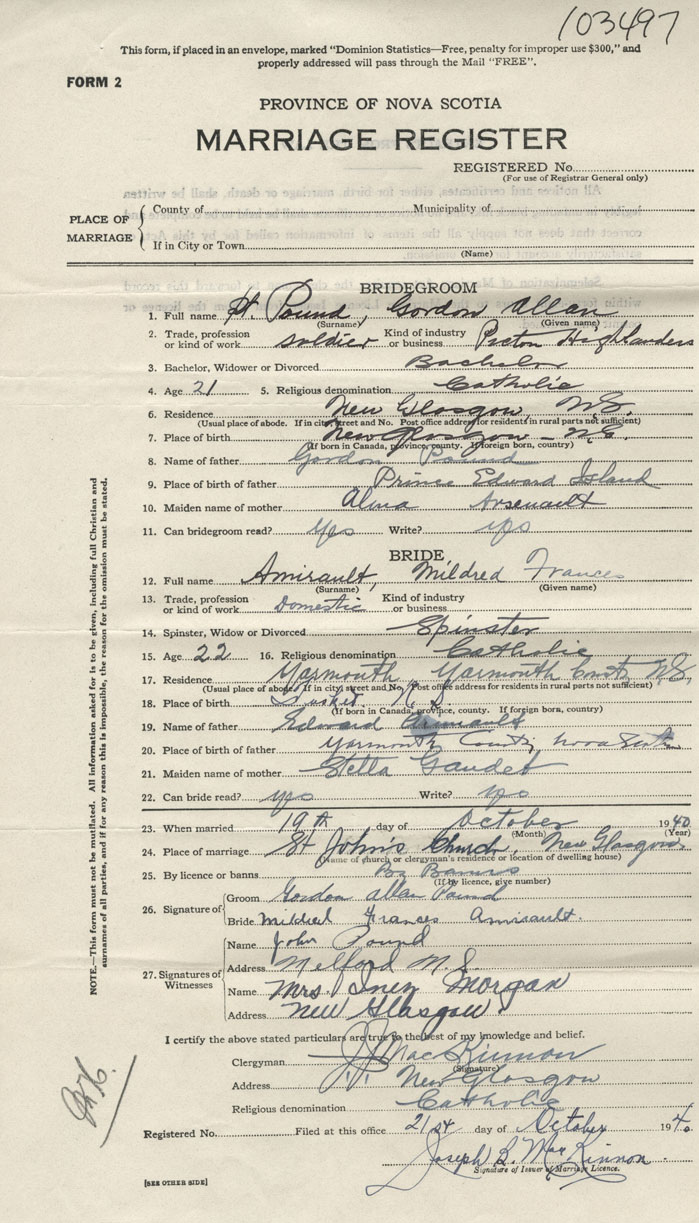 103497
This form, if placed in an envelope, marked "Dominion Statistics—Free, penalty for improper use $300," and
properly addressed will pass through the Mail "FREE".
FORM 2
PROVINCE OF NOVA SCOTIA
MARRIAGE REGISTER
REGISTERED No.
(For use of Registrar General only)
PLACE OF MARRIAGE
County of Municipality of
If in City or Town
(Name)
BRIDEGROOM
1. Full name Pt. Pound, Gordon Allan
(Surname) (Given name)
2. Trade, profession or kind of work soldier Kind of industry or business Pictou Highlanders
3. Bachelor, Widower or Divorced Bachelor
4. Age 21 5. Religious denomination Catholic
6. Residence New Glasgow N.S.
(Usual place of abode. If in city street and No. Post office address for residents in rural parts not sufficient)
7. Place of birth New Glasgow - N.S.
(If born in Canada, province, county. If foreign born, country)
8. Name of father Gordon Pound
9. Place of birth of father Prince Edward Island
10. Maiden name of mother Alma Arsenault
11. Can bridegroom read? yes Write? yes
BRIDE
12. Full name Amirault, Mildred Frances
(Surname) (Given name)
13. Trade, profession or kind of work Domestic Kind of industry or business
14. Spinster, Widow or Divorced Spinster
15. Age 22 16. Religious denomination Catholic
17. Residence Yarmouth Yarmouth County N.S.
(Usual place of abode. If in city street and No. Post office address for residents in rural parts not sufficient)
18. Place of birth Tusket N.S.
(If born in Canada, province, county. If foreign born, country)
19. Name of father Edward Amirault
20. Place of birth of father Yarmouth County, Nova Scotia
21. Maiden name of mother Stella Gaudet
22. Can bride read? yes Write? yes
23. When married 19th day of October 1940
(Month) (Year)
24. Place of marriage St John's Church, New Glasgow
(Name of church or clergyman's residence or location of dwelling house)
25. By licence or banns By Banns
(If by licence, give number)
26. Signature of
Groom Gordon Allan Pound
Bride Mildred Frances Amirault.
27. Signatures of Witnesses
Name John Pound
Address Melford N.S.
Name Mrs. Inez Morgan
Address New Glasgow
I certify the above stated particulars are true to the best of my knowledge and belief.
Clergyman J. J. MacKinnon
(Signature)
Address New Glasgow
Religious denomination Catholic
Registered No. Filed at this office 21st day of October 1940
Joseph B. MacKinnon
Signature of Issuer of Marriage Licence.
[SEE OTHER SIDE]
NOTE.—This form must not be mutilated. All information asked for is to be given, including full Christian and
surnames of all parties, and if for any reason this is impossible, the reason for the omission must be stated.